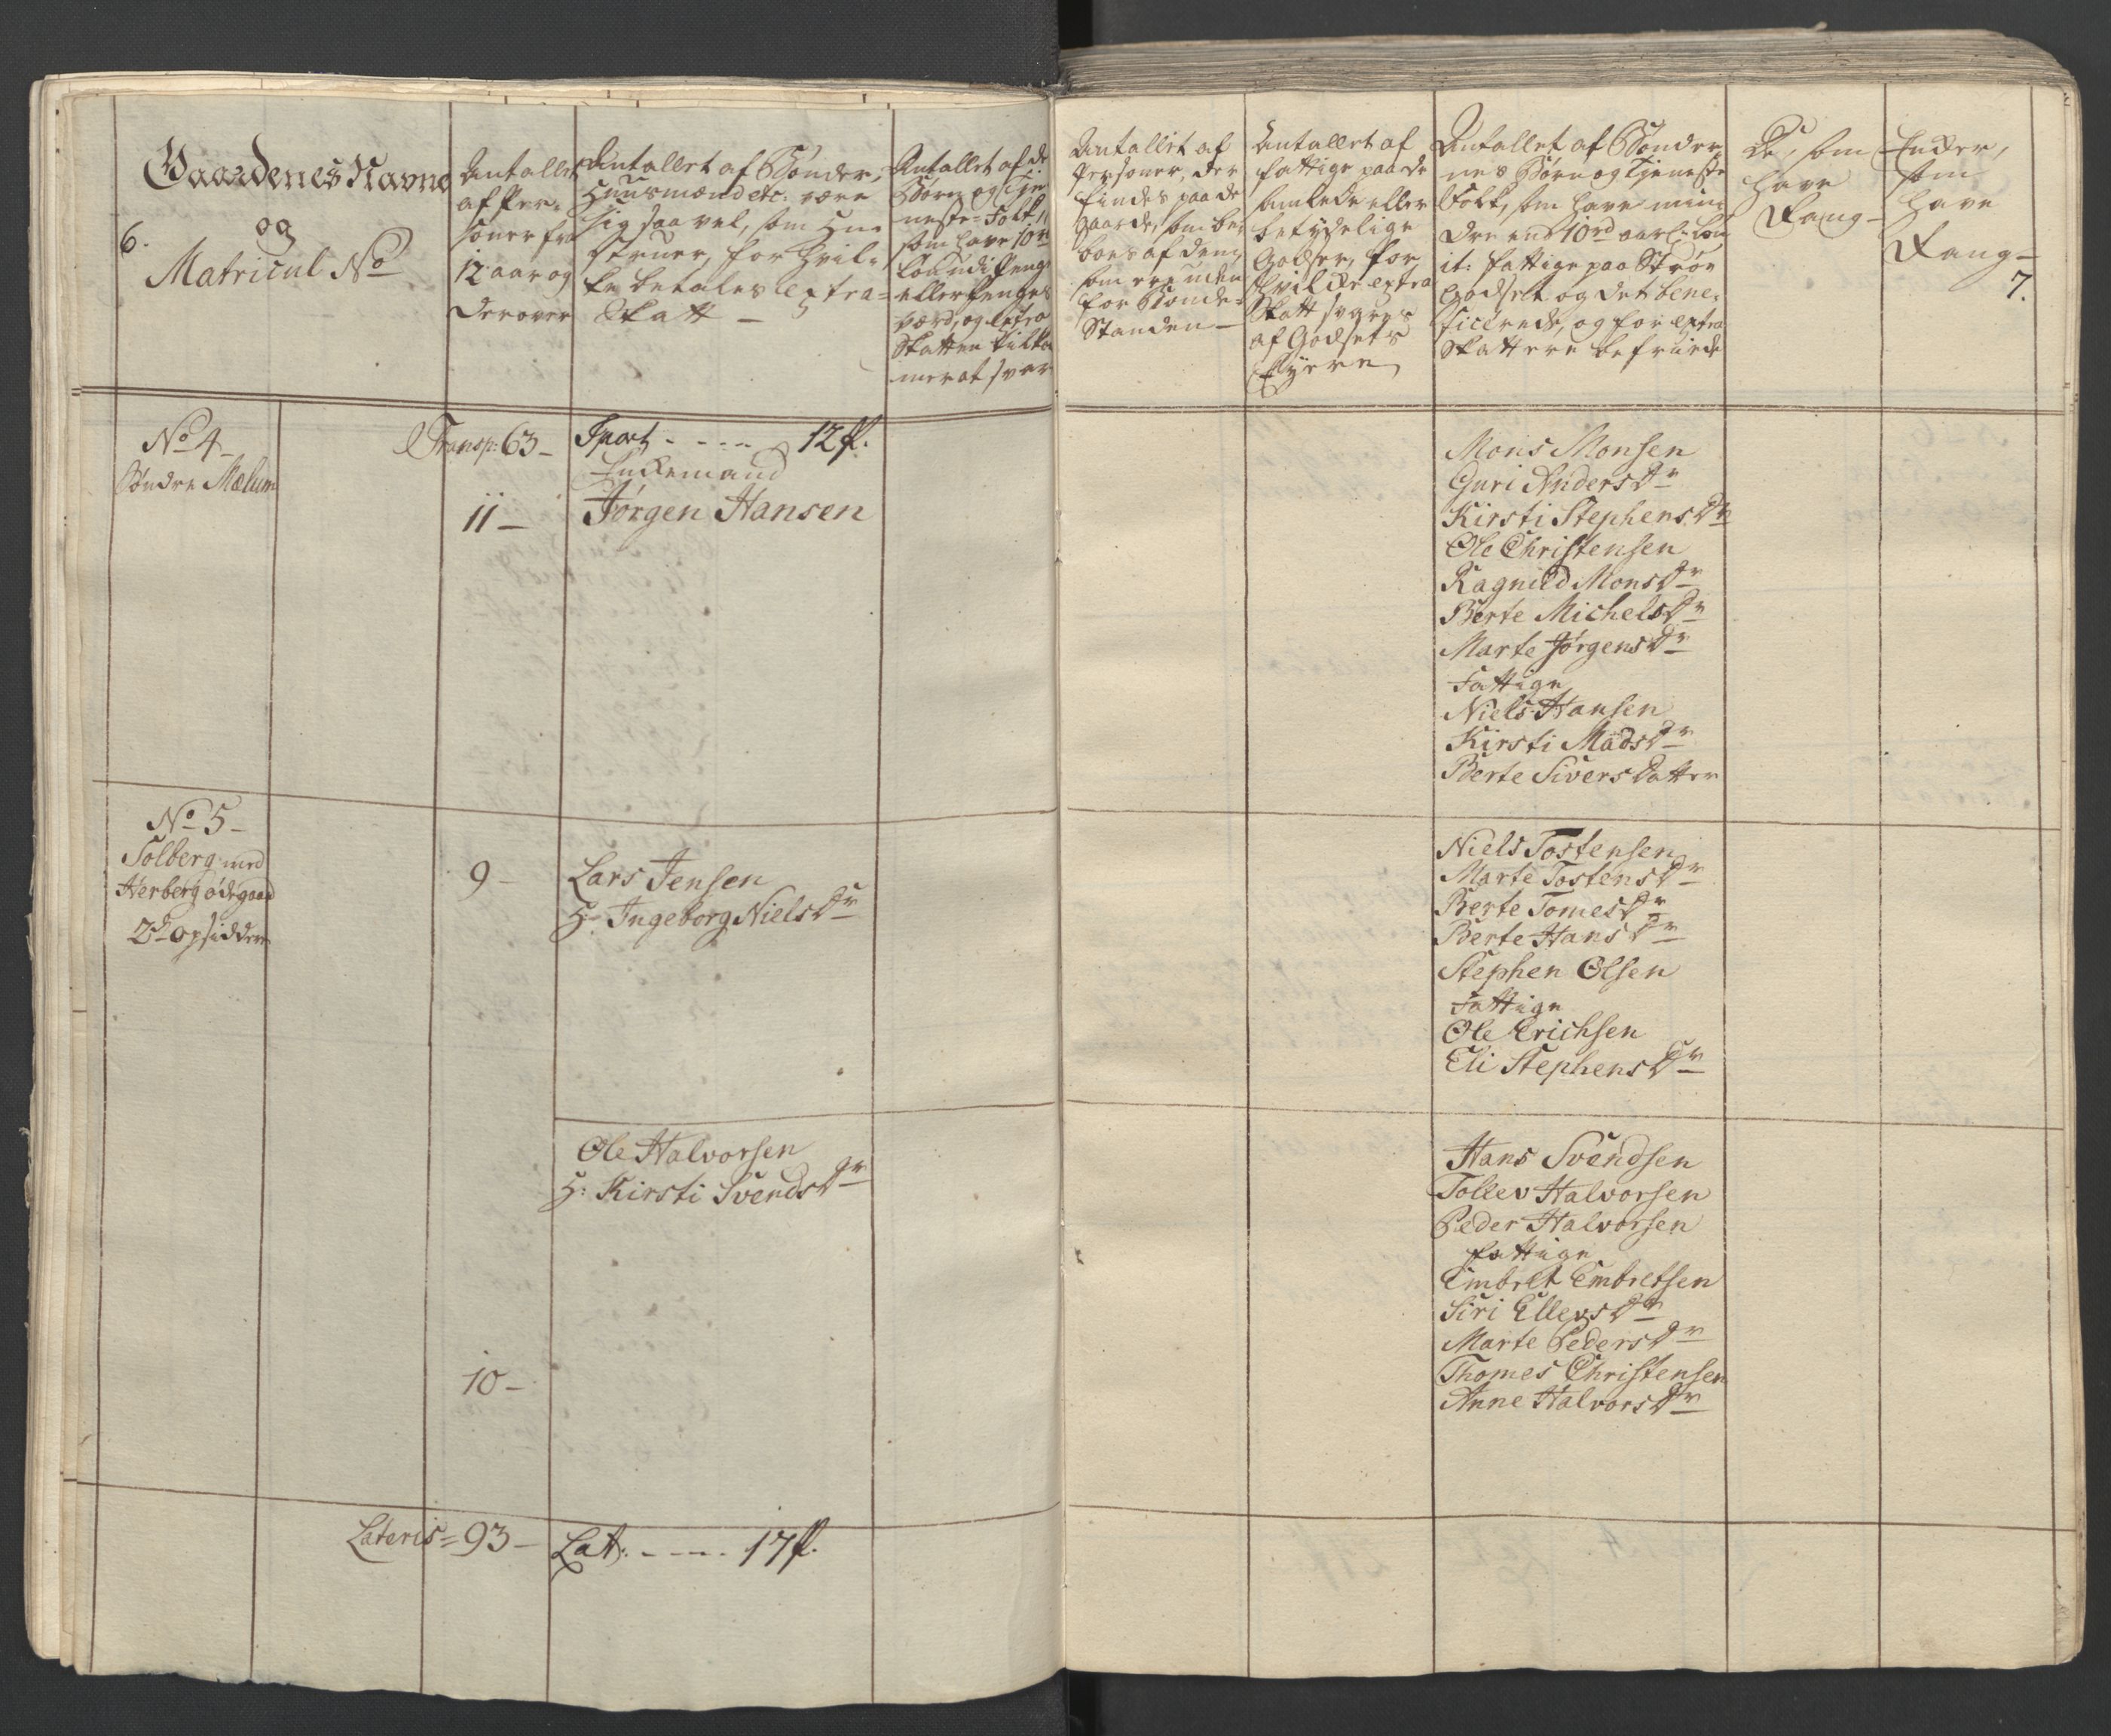 6.
Gaardenes Navne
og
Matricul No
Antallet
af Per-
soner fra
12 aar og
derover
Antallet af Bønder,
Huusmænd etc: være
sig saa vel, som Hu-
struer, for hvil-
ke betales extra-
Skatt
Antallet af de
Børn og Tje-
neste-Folk,
som have 10rd
Løn udi Penge
eller Penges
værd, og extra
Skatten tilko
mer at svar
Antallet af
Personer, der
findes paa de
gaarde, som be-
boes af dem,
som ere uden
for Bonde-
Standen
Antallet af
fattige paa de
samlede eller
betydelige
Godser, for
hvilke extra
Skatt svares
af Godsets
Eyere
Antallet af Bønder-
nes Børn og Tjeneste
Folk, som have min-
dre end 10rd aarl: Løn
it: fattige paa Strøe
Godset og det bene-
ficerede, og for extra
Skatt ere befriede
De, som
have
Rang
Enker,
som
have
Rang
7.
No 4
Søndre Mælum
Transp: 63
Tpart - - - - 12 p.
Enkemand
11 Jørgen Hansen
Mons Monsen
Guri Anders Dr
Kirsti Stephens Dr
Ole Christensen
Ragnild Mons Dr
Berte Michels Dr
Marte Jørgens Dr
Fattige
Niels Hansen
Kirsti Mads Dr
Berte Sivers Datter
No 5
Solberg med
Herberg ødegaard
2de opsiddere
9 Lars Jensen
H: Ingeborg Niels Dr
Niels Tostensen
Marte Tostens Dr
Berte Tomes Dr
Berte Hans Dr
Stephen Olsen
Fattige
Ole Erichsen
Eli Stephens Dr
Ole Halvorsen
H: Kirsti Svends Dr
10
Hans Svendsen
Tollev Halvorsen
Peder Halvorsen
fattige
Embret Embretsen
Siri Ellevs Dr
Marte Peders Dr
Thomes Christensen
Anne Halvors Dr
Lateris = 93
Lat: - - - - 17 p.